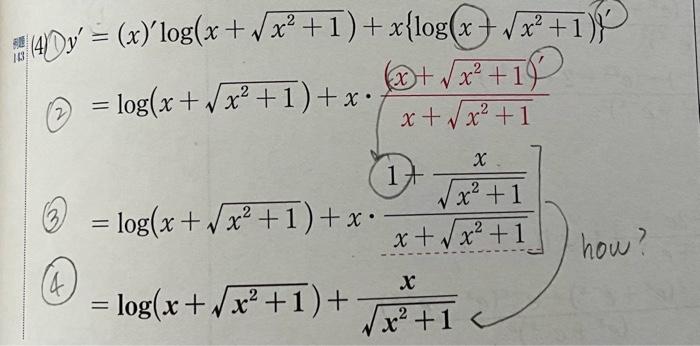 例題 143 (4) ① y' = (x)'log(x + √(x² + 1)) + x{log(x + √(x² + 1))}'
② = log(x + √(x² + 1)) + x · (x + √(x² + 1))' / (x + √(x² + 1))
③ = log(x + √(x² + 1)) + x · (1 + x/√(x² + 1)) / (x + √(x² + 1))
how?
④ = log(x + √(x² + 1)) + x/√(x² + 1)